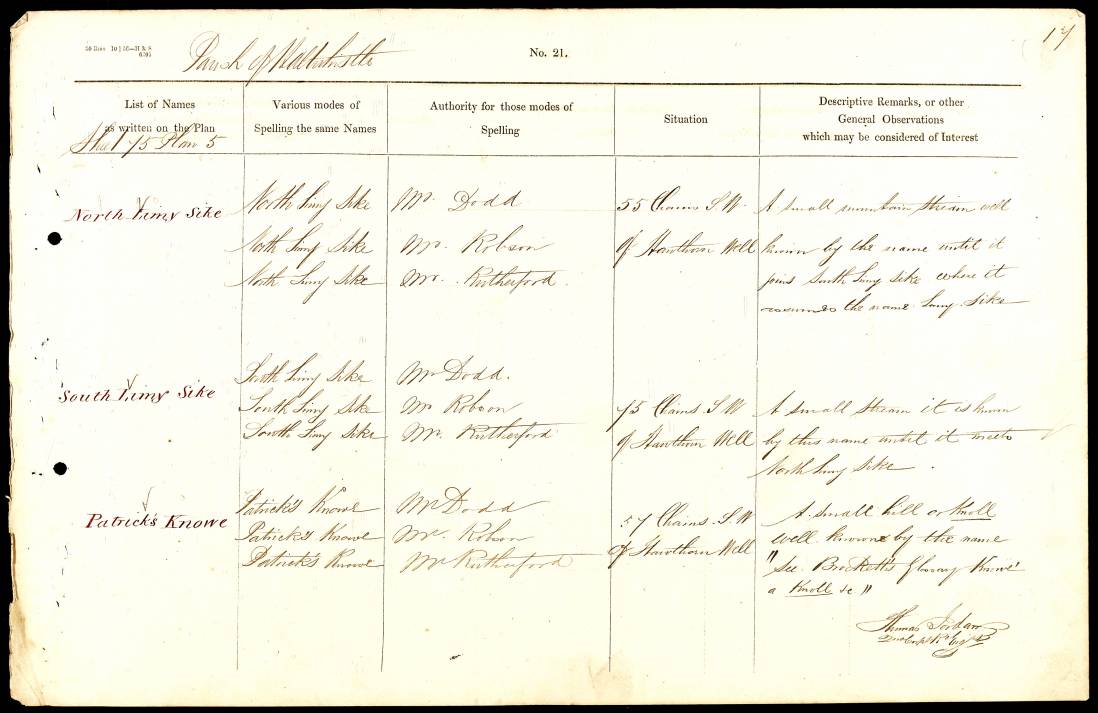 17
Parish of Haltwhistle
No. 21.
List of Names
as written on the Plan
Various modes of
Spelling the same Names
Authority for those modes of
Spelling
Situation
Descriptive Remarks, or other
General Observations
which may be considered of Interest
Sheet 75 Plan 5
North Limy Sike
North Limy Sike
Mr. Dodd
55 Chains S.W.
A small mountain stream well
North Limy Sike
Mr. Robson
of Hawthorn Well
known by the name until it
North Limy Sike
Mr. Rutherford
joins South Limy Sike where it
assumes the name Limy Sike
South Limy Sike
South Limy Sike
Mr Dodd.
South Limy Sike
Mr Robson
75 Chains. S.W
A small stream it is known
South Limy Sike
Mr. Rutherford
of Hawthorn Well
by this name until it meets
North Limy Sike.
Patrick's Knowe
Patrick's Knowe
Mr Dodd
57 Chains. S.W
A small hill or Knoll
Patrick's Knowe
Mr. Robson
of Hawthorn Well
well known by the name
Patrick's Knowe
Mr Rutherford
"See Brockett's Glossary Knowe
a Knoll &c"
Thomas Jordan
2nd Corpl Rl Engrs